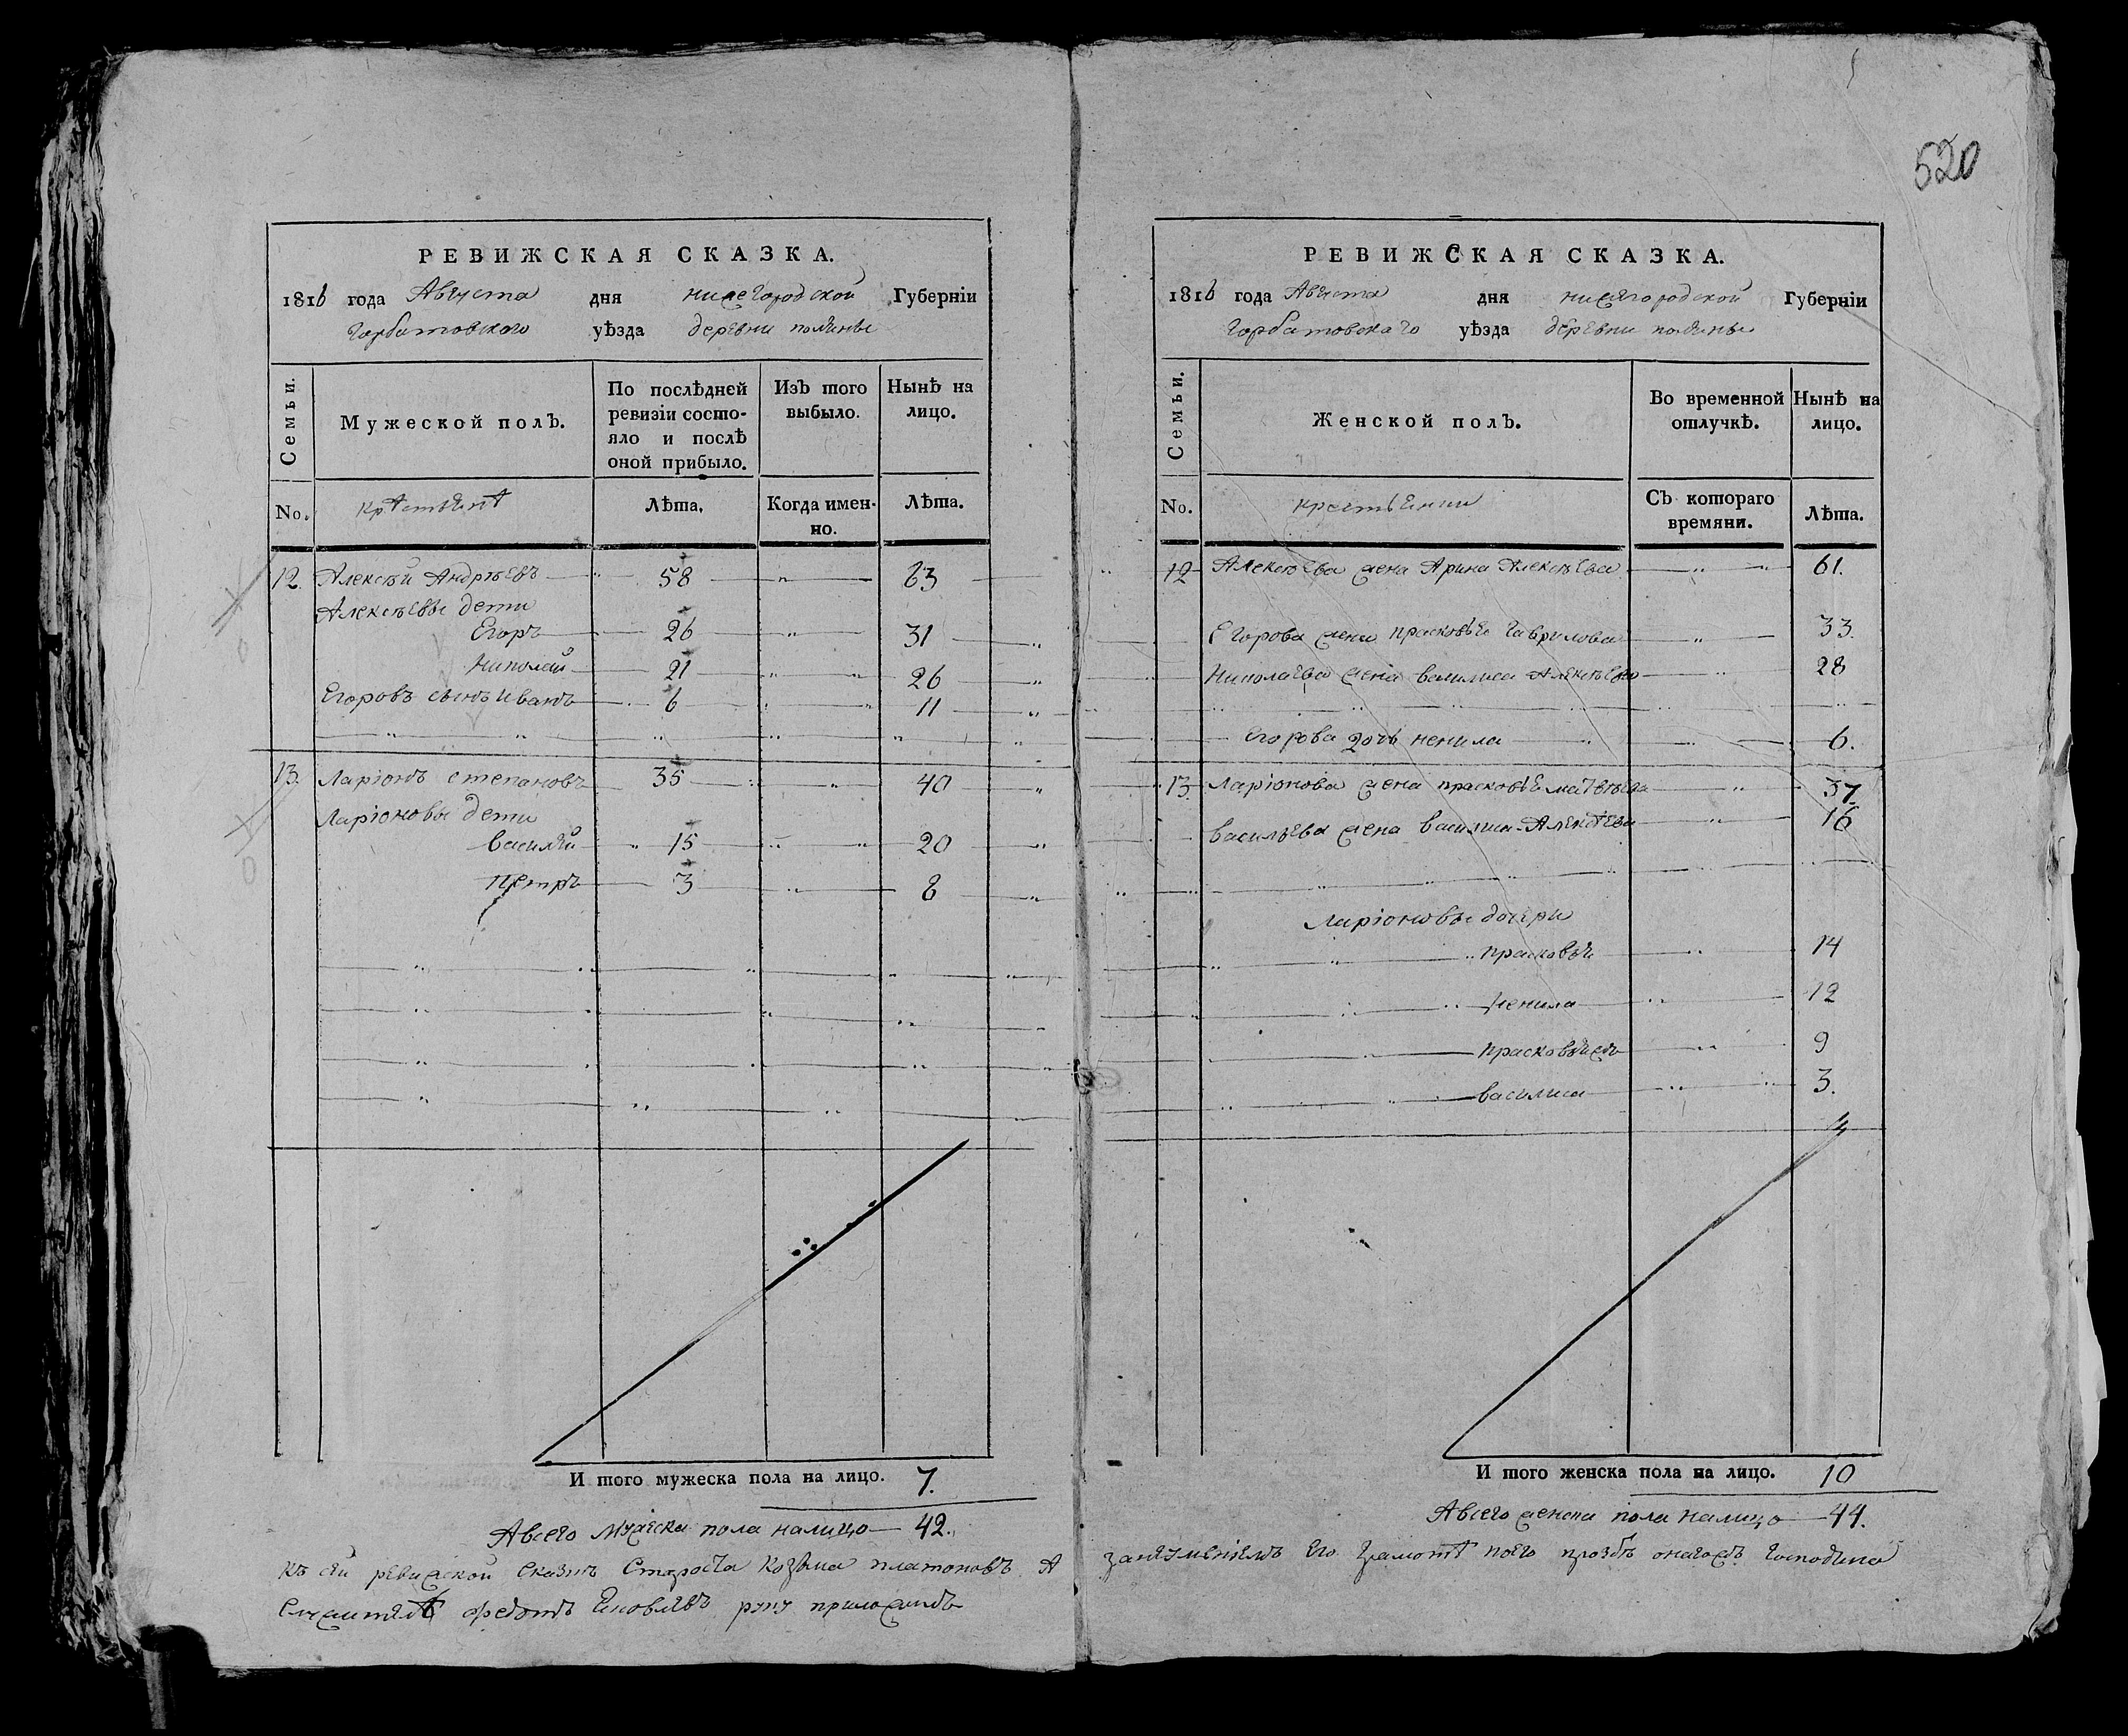 520
РЕВИЖСКАЯ СКАЗКА.
1816 года Августа дня нижегородской Губерніи
Горбатовского уѣзда деревни
Семьи.
Мужеской полъ.
По послѣдней ревизіи состо-
яло и послѣ
оной прибыло.
Изъ того
выбыло.
Нынѣ на
лицо.
No.
Лѣта.
Когда имен-
но.
Лѣта.
12. Алексѣй Андрѣевъ 58 63
Алексѣевы дети
Егоръ 26 31
Николай 21 26
Егоровъ сынъ Иванъ 6 11
13. Ларіонъ степановъ 35 40
Ларіоновы дети
василей 15 20
Петръ 3 8
И того мужеска пола на лицо. 7.
Авсего мужеска пола налицо 42.
къ сей ревижской сказкѣ Староста козьма платоновъ А
федотъ Яковлевъ руку приложилъ
РЕВИЖСКАЯ СКАЗКА.
1816 года Августа дня нижегородской Губерніи
Горбатовскаго уѣзда деревни
Семьи.
Женской полъ.
Во временной
отлучкѣ.
Нынѣ на
лицо.
No.
Съ котораго
времяни.
Лѣта.
12 Алексѣева жена Арина Алексѣева 61.
Егорова жена прасковья гаврилова 33.
Николаева жена василиса Алексѣева 28
Егорова дочь ненила 6.
13. Ларіонова жена прасковья матвѣева 37
васильева жена василиса Алексѣева 16
Ларіоновы дочери
прасковья 14
ненила 12
прасковья жъ 9
василиса 3.
И того женска пола на лицо. 10
Авсего женска пола налицо 44.
занеумениемъ его грамотѣ поего прозбѣ онагожъ господина